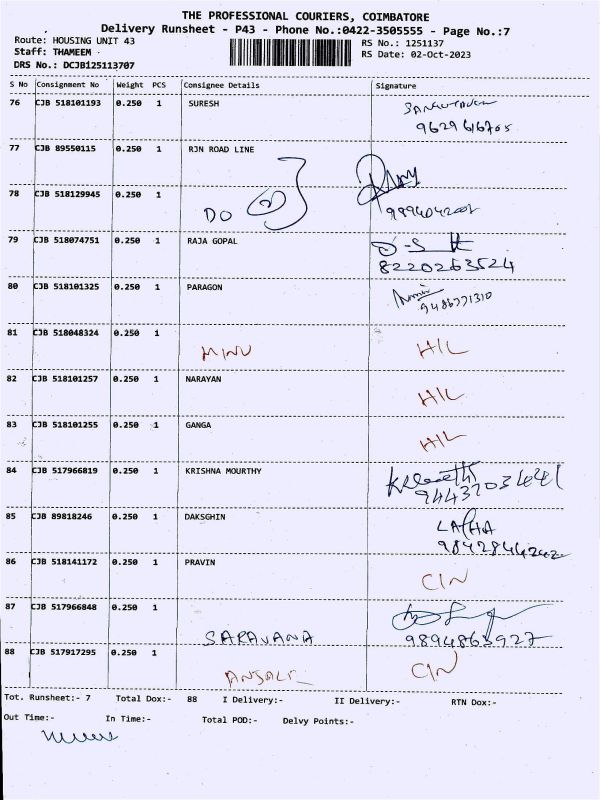 THE PROFESSIONAL COURIERS, COIMBATORE
Delivery Runsheet - P43 - Phone No.:0422-3505555 - Page No.:7
Route: HOUSING UNIT 43
RS No.: 1251137
Staff: THAMEEM
RS Date: 02-Oct-2023
DRS No.: DCJB125113707
S No Consignment No Weight PCS Consignee Details Signature
76 CJB 518101193 0.250 1 SURESH
9629616705
77 CJB 89550115 0.250 1 RJN ROAD LINE
78 CJB 518129945 0.250 1
DO
79 CJB 518074751 0.250 1 RAJA GOPAL
8220263524
80 CJB 518101325 0.250 1 PARAGON
9486771310
81 CJB 518048324 0.250 1
MINU H/L
82 CJB 518101257 0.250 1 NARAYAN
H/L
83 CJB 518101255 0.250 1 GANGA
H/L
84 CJB 517966819 0.250 1 KRISHNA MOURTHY
85 CJB 89818246 0.250 1 DAKSGHIN
LATHA
86 CJB 518141172 0.250 1 PRAVIN
C/N
87 CJB 517966848 0.250 1
SARAVANA 9894863927
88 CJB 517917295 0.250 1
C/N
Tot. Runsheet:- 7 Total Dox:- 88 I Delivery:- II Delivery:- RTN Dox:-
Out Time:- In Time:- Total POD:- Delvy Points:-